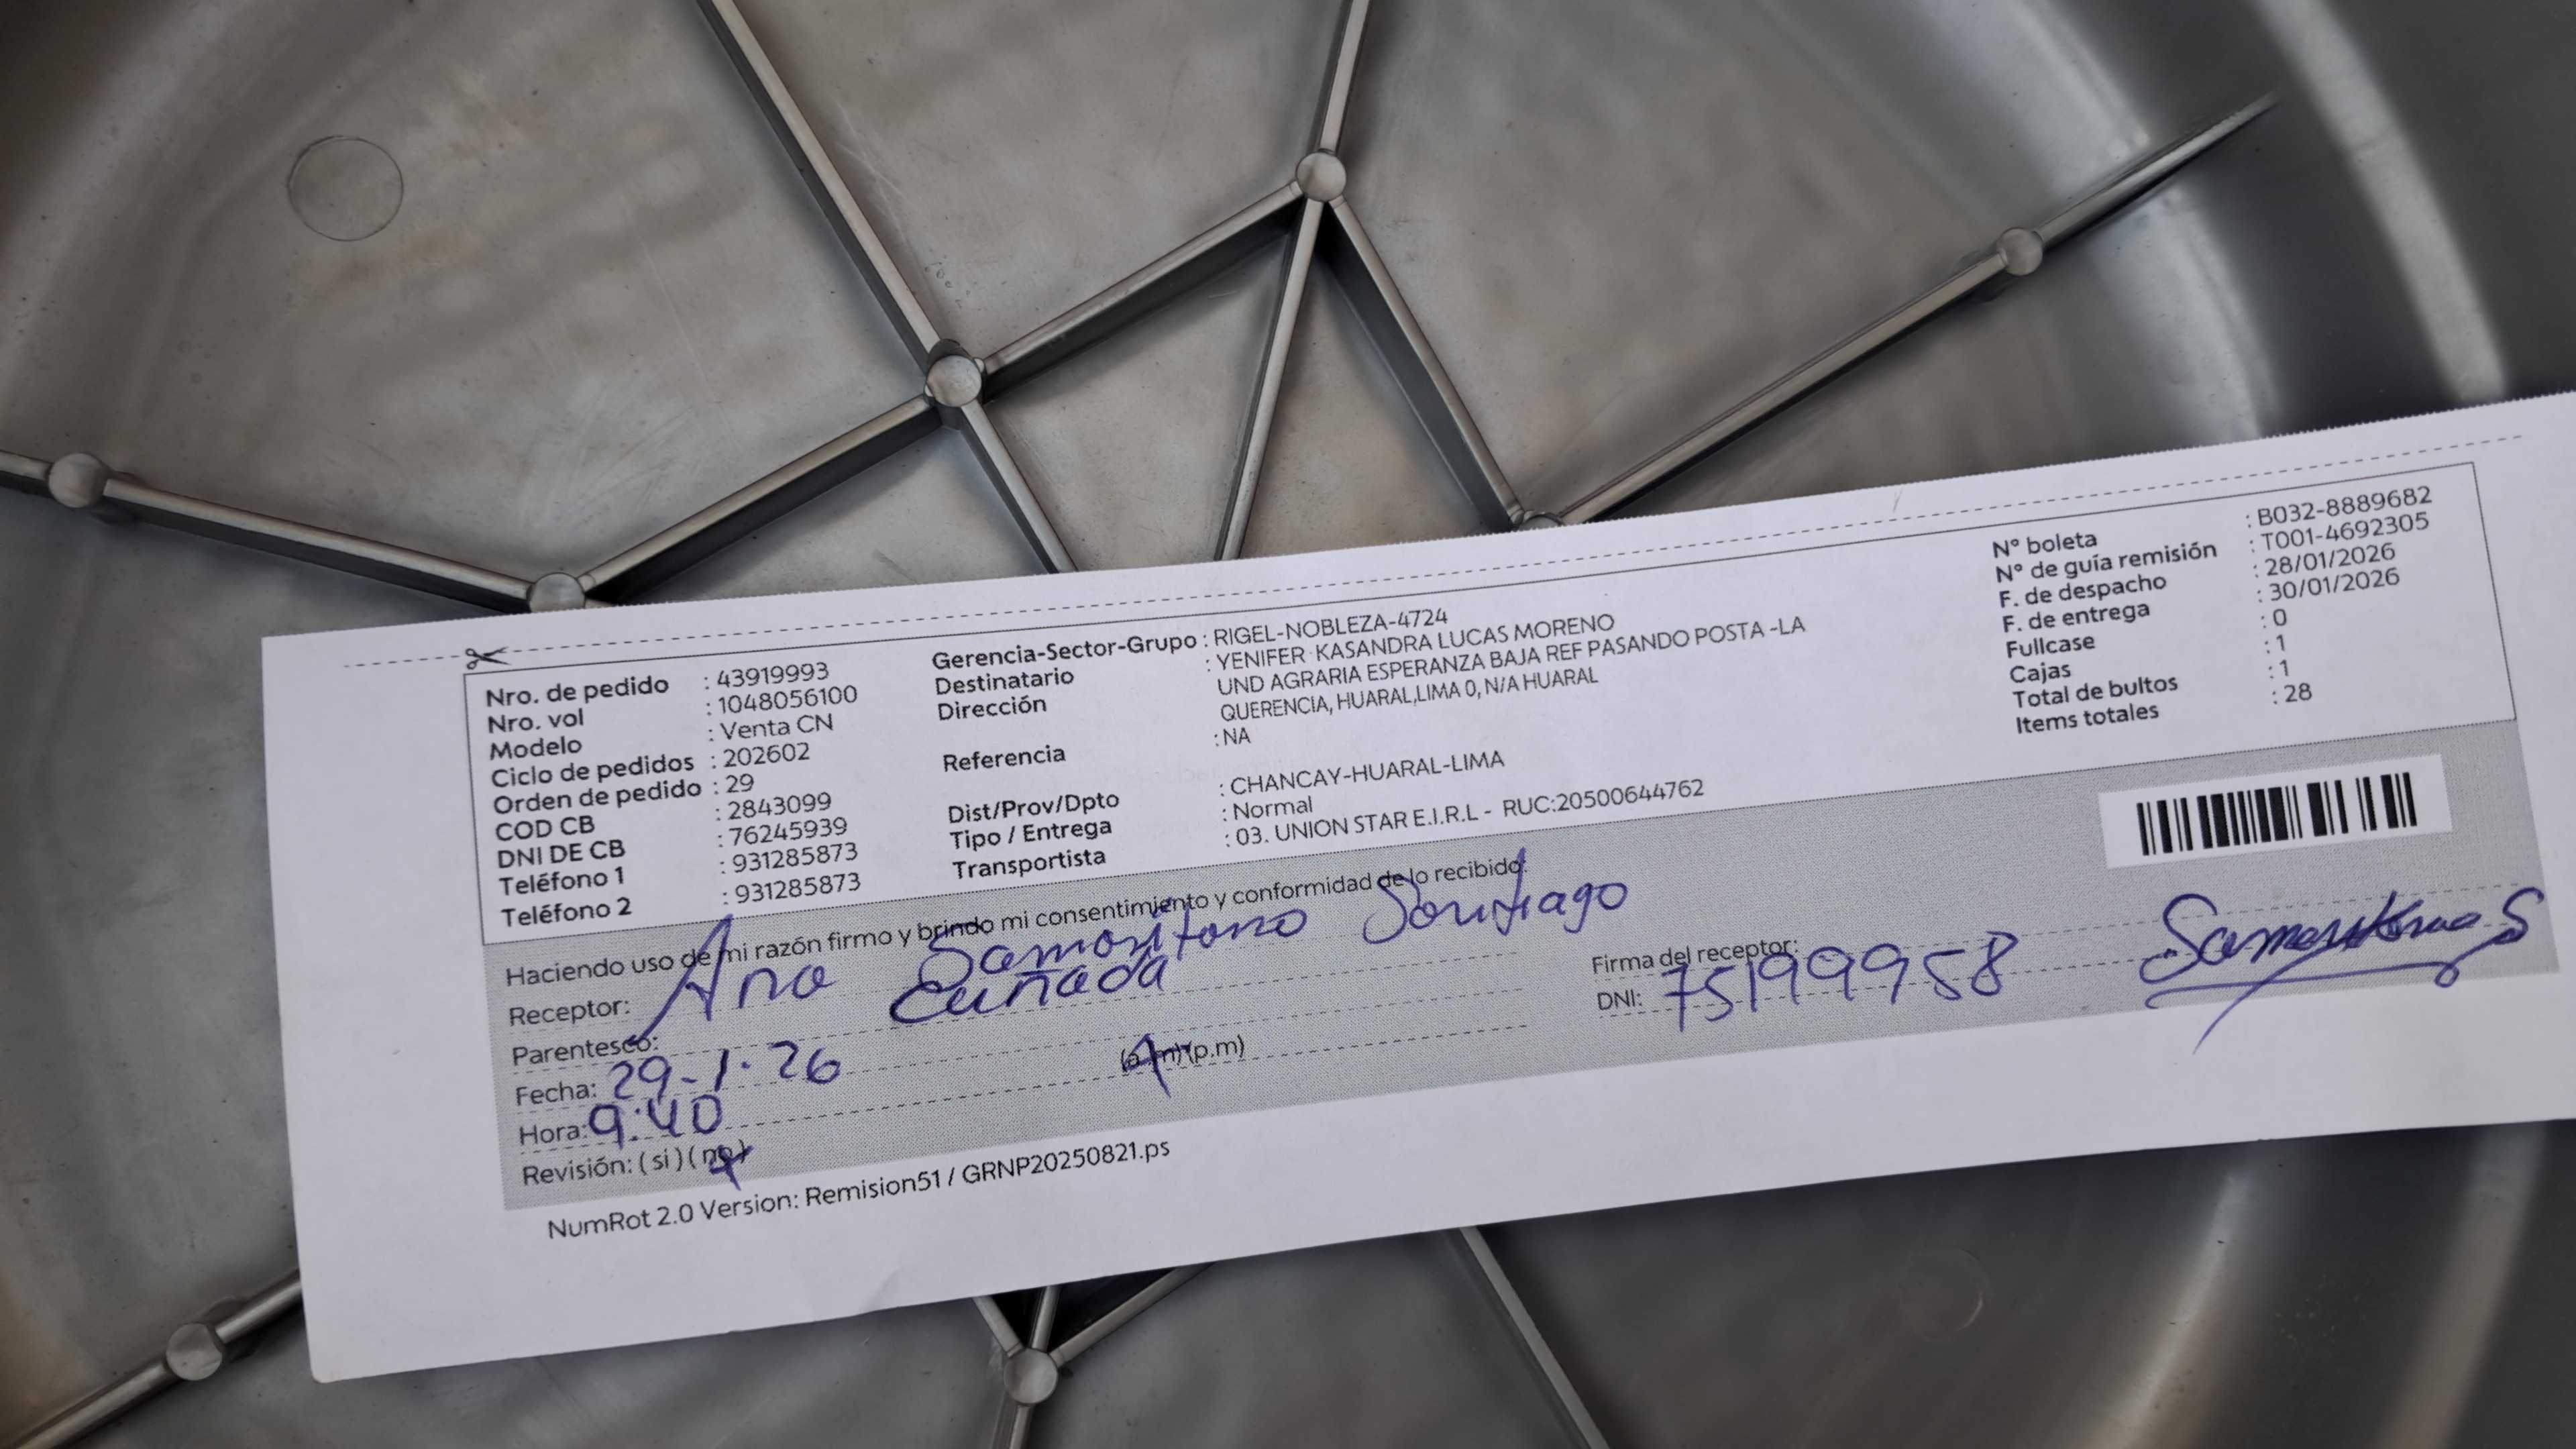 Nro. de pedido : 43919993
Nro. vol : 1048056100
Modelo : Venta CN
Ciclo de pedidos : 202602
Orden de pedido : 29
COD CB : 2843099
DNI DE CB : 76245939
Teléfono 1 : 931285873
Teléfono 2 : 931285873
Gerencia-Sector-Grupo : RIGEL-NOBLEZA-4724
Destinatario : YENIFER KASANDRA LUCAS MORENO
Dirección UND AGRARIA ESPERANZA BAJA REF PASANDO POSTA -LA
QUERENCIA, HUARAL,LIMA 0, N/A HUARAL
Referencia : NA
Dist/Prov/Dpto : CHANCAY-HUARAL-LIMA
Tipo / Entrega : Normal
Transportista : 03. UNION STAR E.I.R.L - RUC:20500644762
N° boleta : B032-8889682
N° de guía remisión : T001-4692305
F. de despacho : 28/01/2026
F. de entrega : 30/01/2026
Fullcase : 0
Cajas : 1
Total de bultos : 1
Items totales : 28
Haciendo uso de mi razón firmo y brindo mi consentimiento y conformidad de lo recibido:
Receptor: Ana Samaritano Santiago
Parentesco: cuñada
Fecha: 29-1-26
Hora: 9:40 (a.m) (p.m)
Revisión: ( si ) ( no )
Firma del receptor:
DNI: 75199958
NumRot 2.0 Version: Remision51 / GRNP20250821.ps